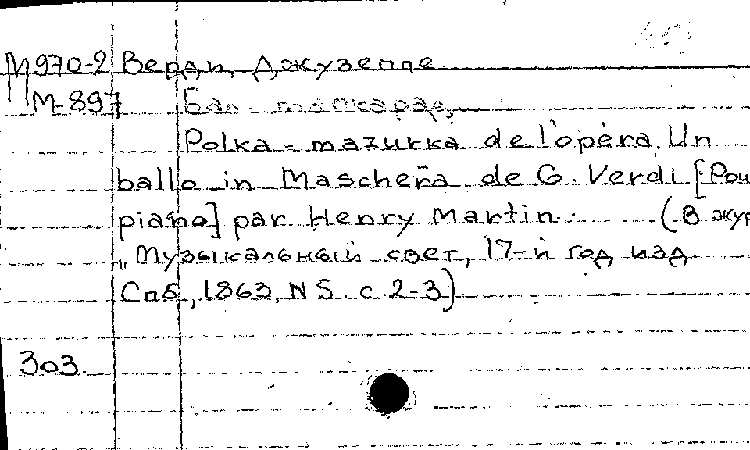 М970-2 Верди, Джузеппе
М-897 Бал - маскарад,
Polka-mazurka de l'opéra Un
ballo in Maschera de G. Verdi [Pou
piano] par Henry Martin. (В жур
„Музыкальный свет, 17-й год изд
Спб, 1863, N 5. с 2-3)
303